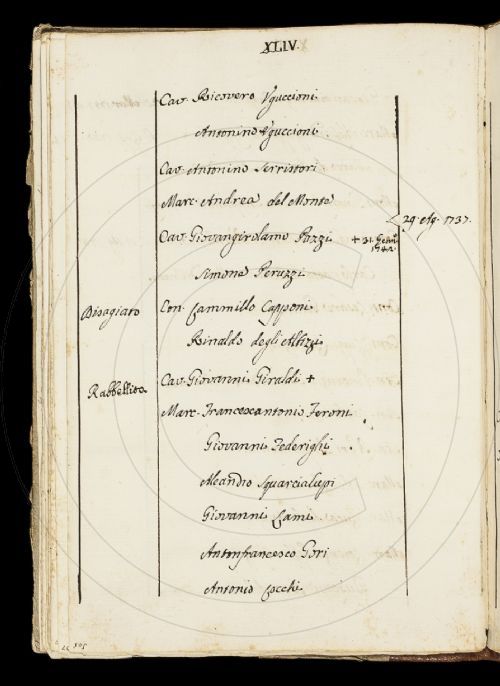 XLIV.
Cav. Ricovero Uguccioni.
Antonino Uguccioni.
Cav. Antonino Serristori
Marc. Andrea del Monte
29. Ag. 1737.
Cav. Giovangirolamo Pazzi + 31. Genn.o 1742.
Simone Peruzzi
Disagiato Con. Cammillo Capponi
Rinaldo degli Albizzi
Rabbellito Cav. Giovanni Giraldi +
Marc. Francescantonio Feroni
Giovanni Federighi.
Aleandro Squarcialupi
Giovanni Lami
Antonfrancesco Gori
Antonio Cocchi